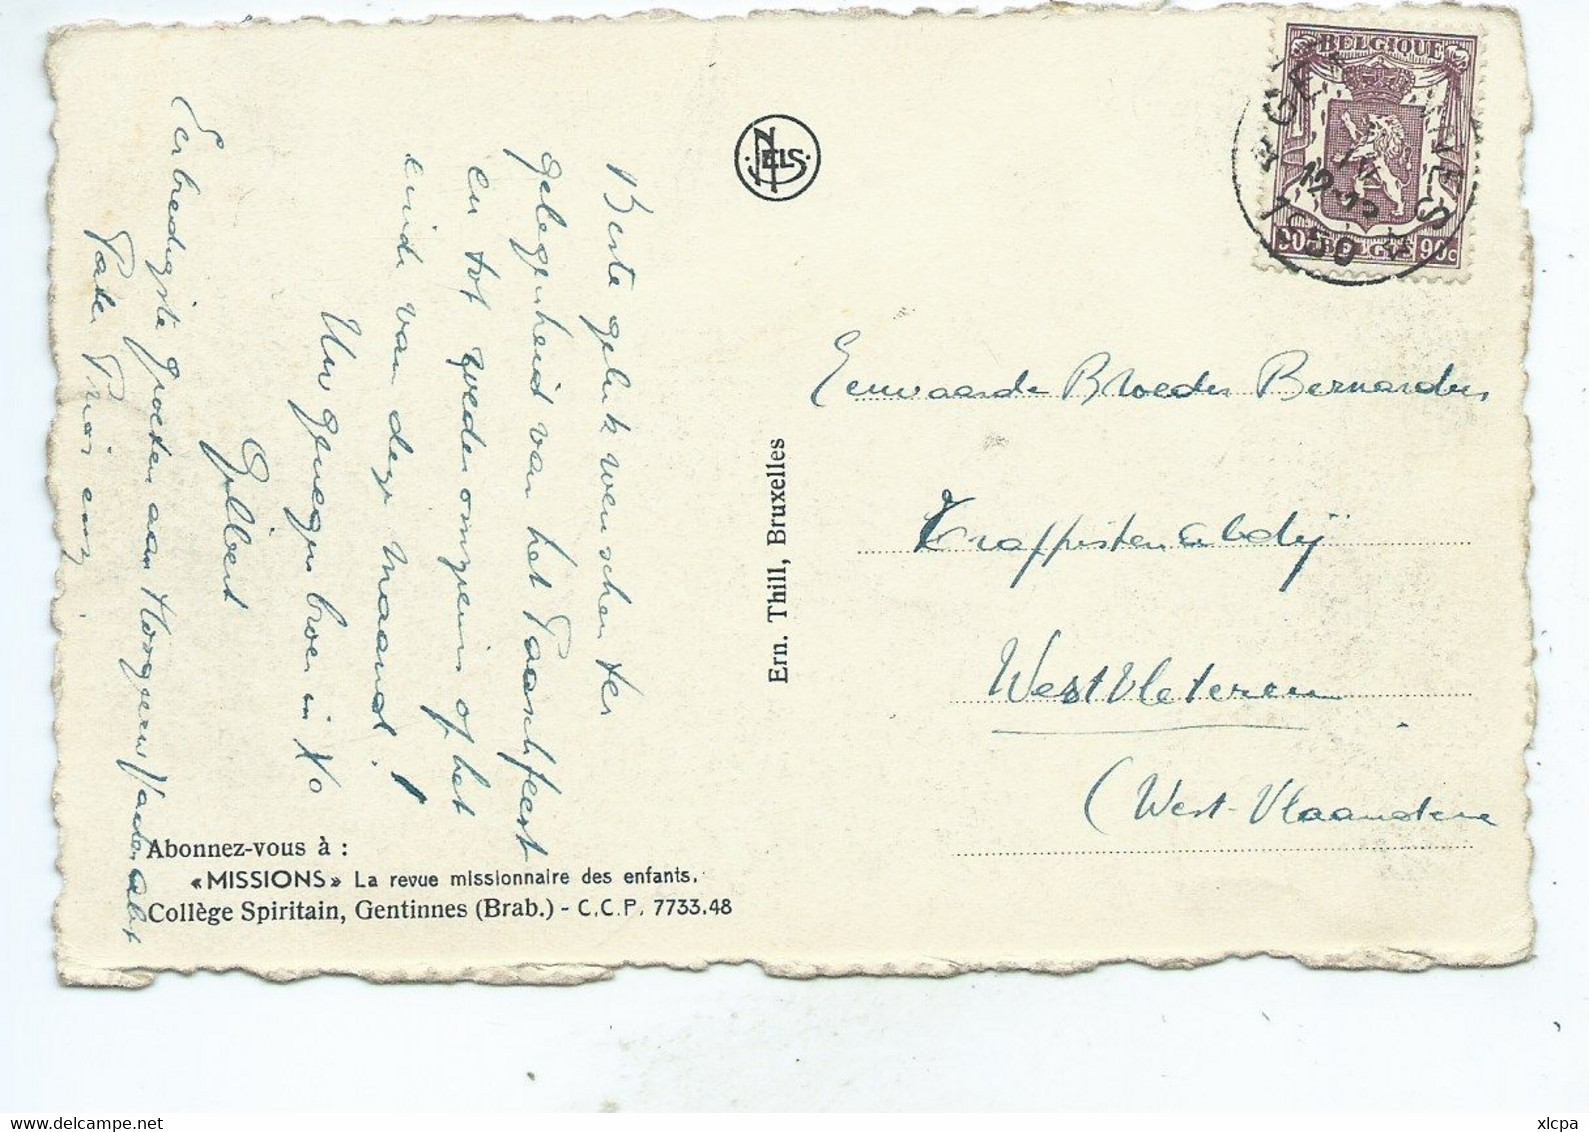 Beste gelukwenschen ter
gelegenheid van het Paaschfeest
en tot wederomziens op het
einde van deze maand!
Uw genegen broer in Xo
Gilbert
Eerbiedigste groeten aan Hoogeerw Vader abt
Pater Prior enz.
NELS
Ern. Thill, Bruxelles
Abonnez-vous à :
«MISSIONS» La revue missionnaire des enfants.
Collège Spiritain, Gentinnes (Brab.) - C.C.P. 7733.48
BELGIQUE
90c BELGIE 90c
1950
Eerwaarde Broeder Bernardus
Trappistenabdij
WestVleteren
(West-Vlaanderen
www.delcampe.net
xlcpa